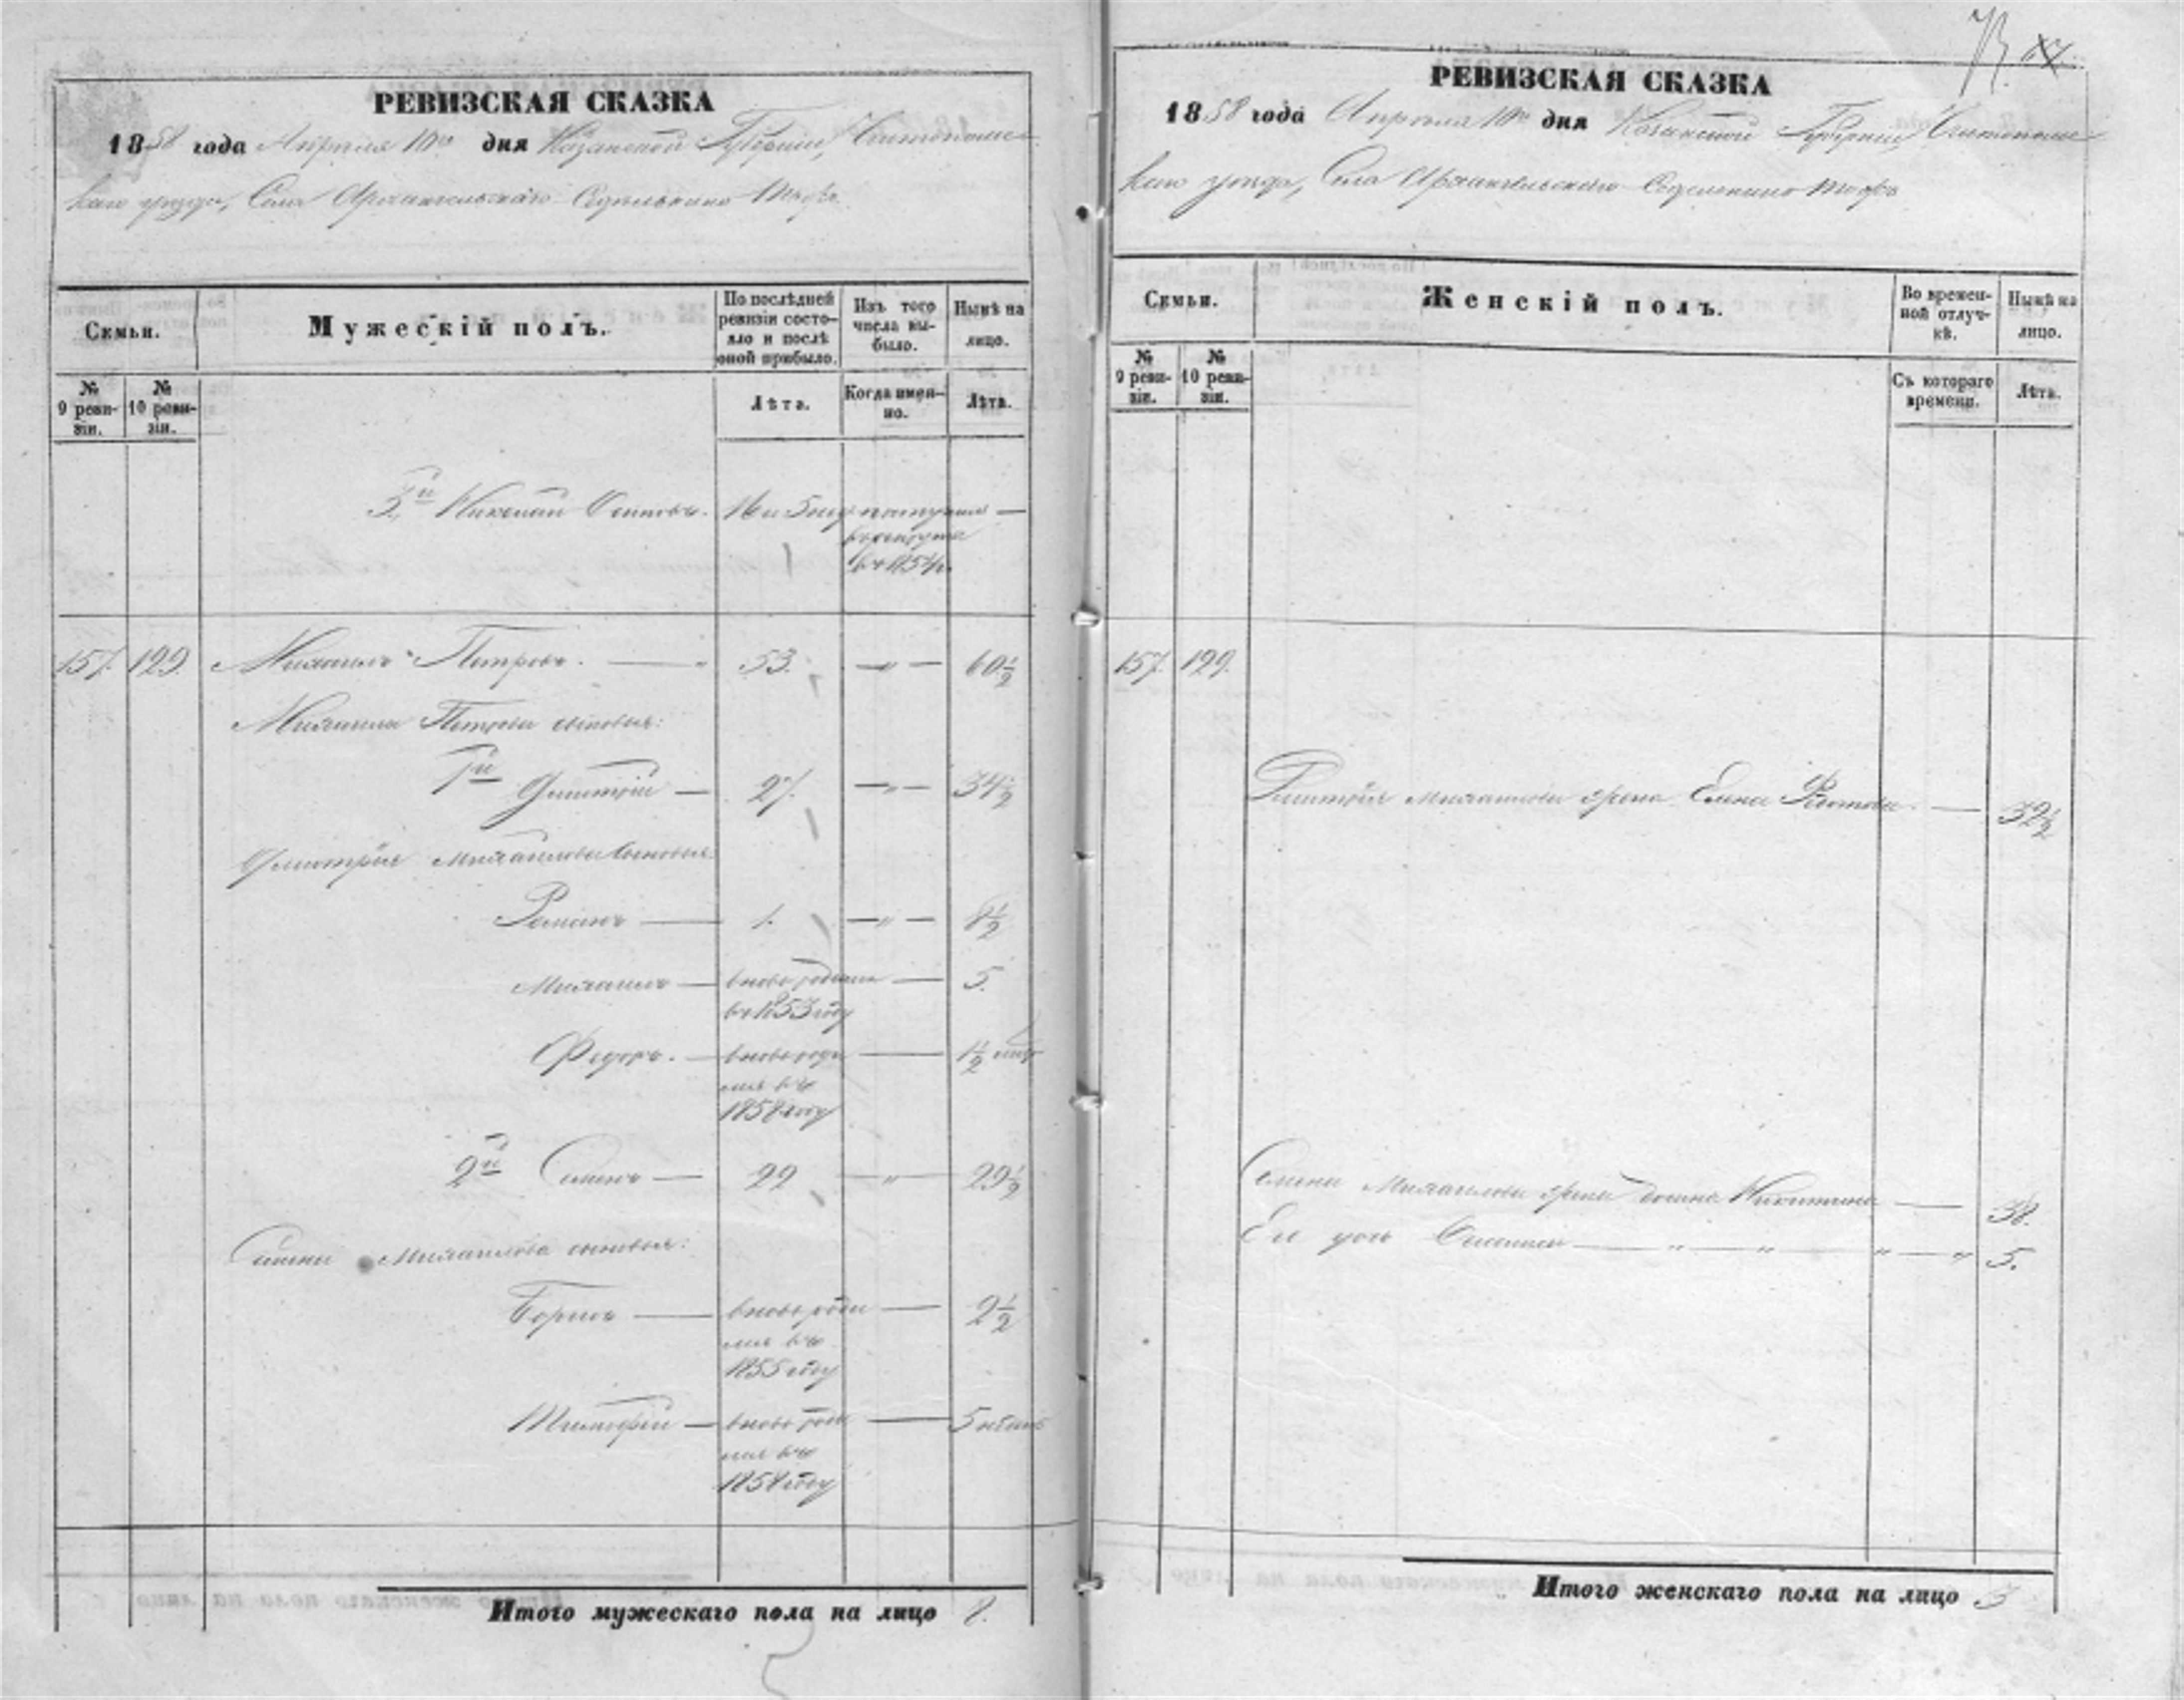 РЕВИЗСКАЯ СКАЗКА
1858 года Апреля 10го дня Казанской Губерніи, Чистопольс-
каго уезда, Села Архангельскаго
Семьи.
Мужескій полъ.
По послѣдней ревизіи состо-
яло и послѣ оной прибыло.
Изъ того числа вы-
было.
Нынѣ на лицо.
№ 9 реви-
зіи.
№ 10 реви-
зіи.
Лѣта.
Когда имен-
но.
Лѣта.
3й Николай Осиповъ. 16 и 5 поступилъ —
въ рекруты
въ 1854 г.
157. 129. Михаилъ Петровъ. — 53. — „ — 60½
Михаила Петрова сыновья:
1й Дмитрій — 27. — „ — 34½
Дмитрія Михайлова сыновья:
Романъ — 1. — „ — 8½
Михаилъ — вновь родился — 5.
въ 1853 году
Федоръ. — вновь роди — 1½
лся въ
1858 году
2й Семенъ — 22 — „ — 29½
Семена Михайлова сыновья:
Борисъ — вновь роди — 2½
лся въ
1855 году
Тимофей — вновь роди — 5 недель
лся въ
1858 году
Итого мужескаго пола на лицо 8.
РЕВИЗСКАЯ СКАЗКА
1858 года Апреля 10го дня Казанской Губерніи Чистопольс-
каго уезда, Села Архангельскаго
Семьи.
Женскій полъ.
Во времен-
ной отлуч-
кѣ.
Нынѣ на лицо.
№ 9 реви-
зіи.
№ 10 реви-
зіи.
Съ котораго времени.
Лѣта.
157. 129.
Дмитрія Михайлова жена Елена — 32½
Семена Михайлова жена Домна Никитина — 38.
Ее дочь — „ — „ — „ — „ 5.
Итого женскаго пола на лицо 3